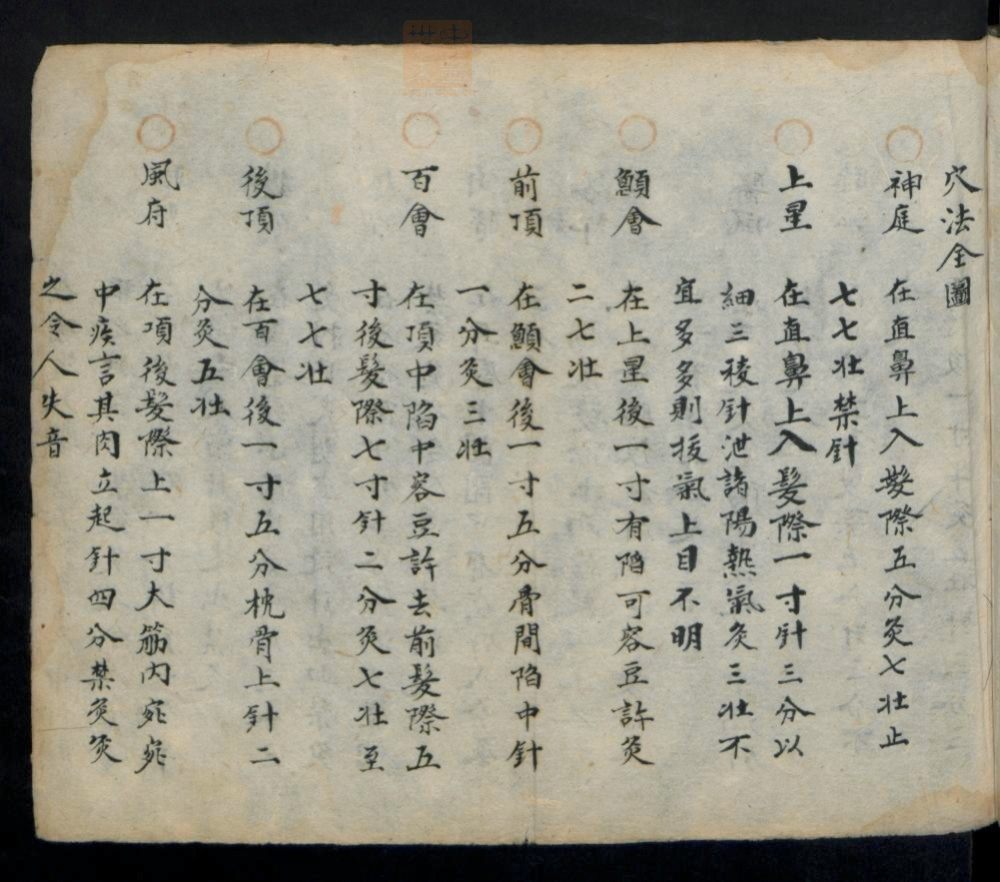 穴法全圖
神庭 在直鼻上入髮際五分灸七壯止
七七壯禁針
上星 在直鼻上入髮際一寸針三分以
細三稜針泄諸陽熱氣灸三壯不
宜多多則拔氣上目不明
顖會 在上星後一寸有陷可容豆許灸
二七壯
前頂 在顖會後一寸五分骨間陷中針
一分灸三壯
百會 在項中陷中容豆許去前髮際五
寸後髮際七寸針二分灸七壯至
七七壯
後頂 在百會後一寸五分枕骨上針二
分灸五壯
風府 在項後髮際上一寸大筋內宛宛
中疾言其肉立起針四分禁灸灸
之令人失音